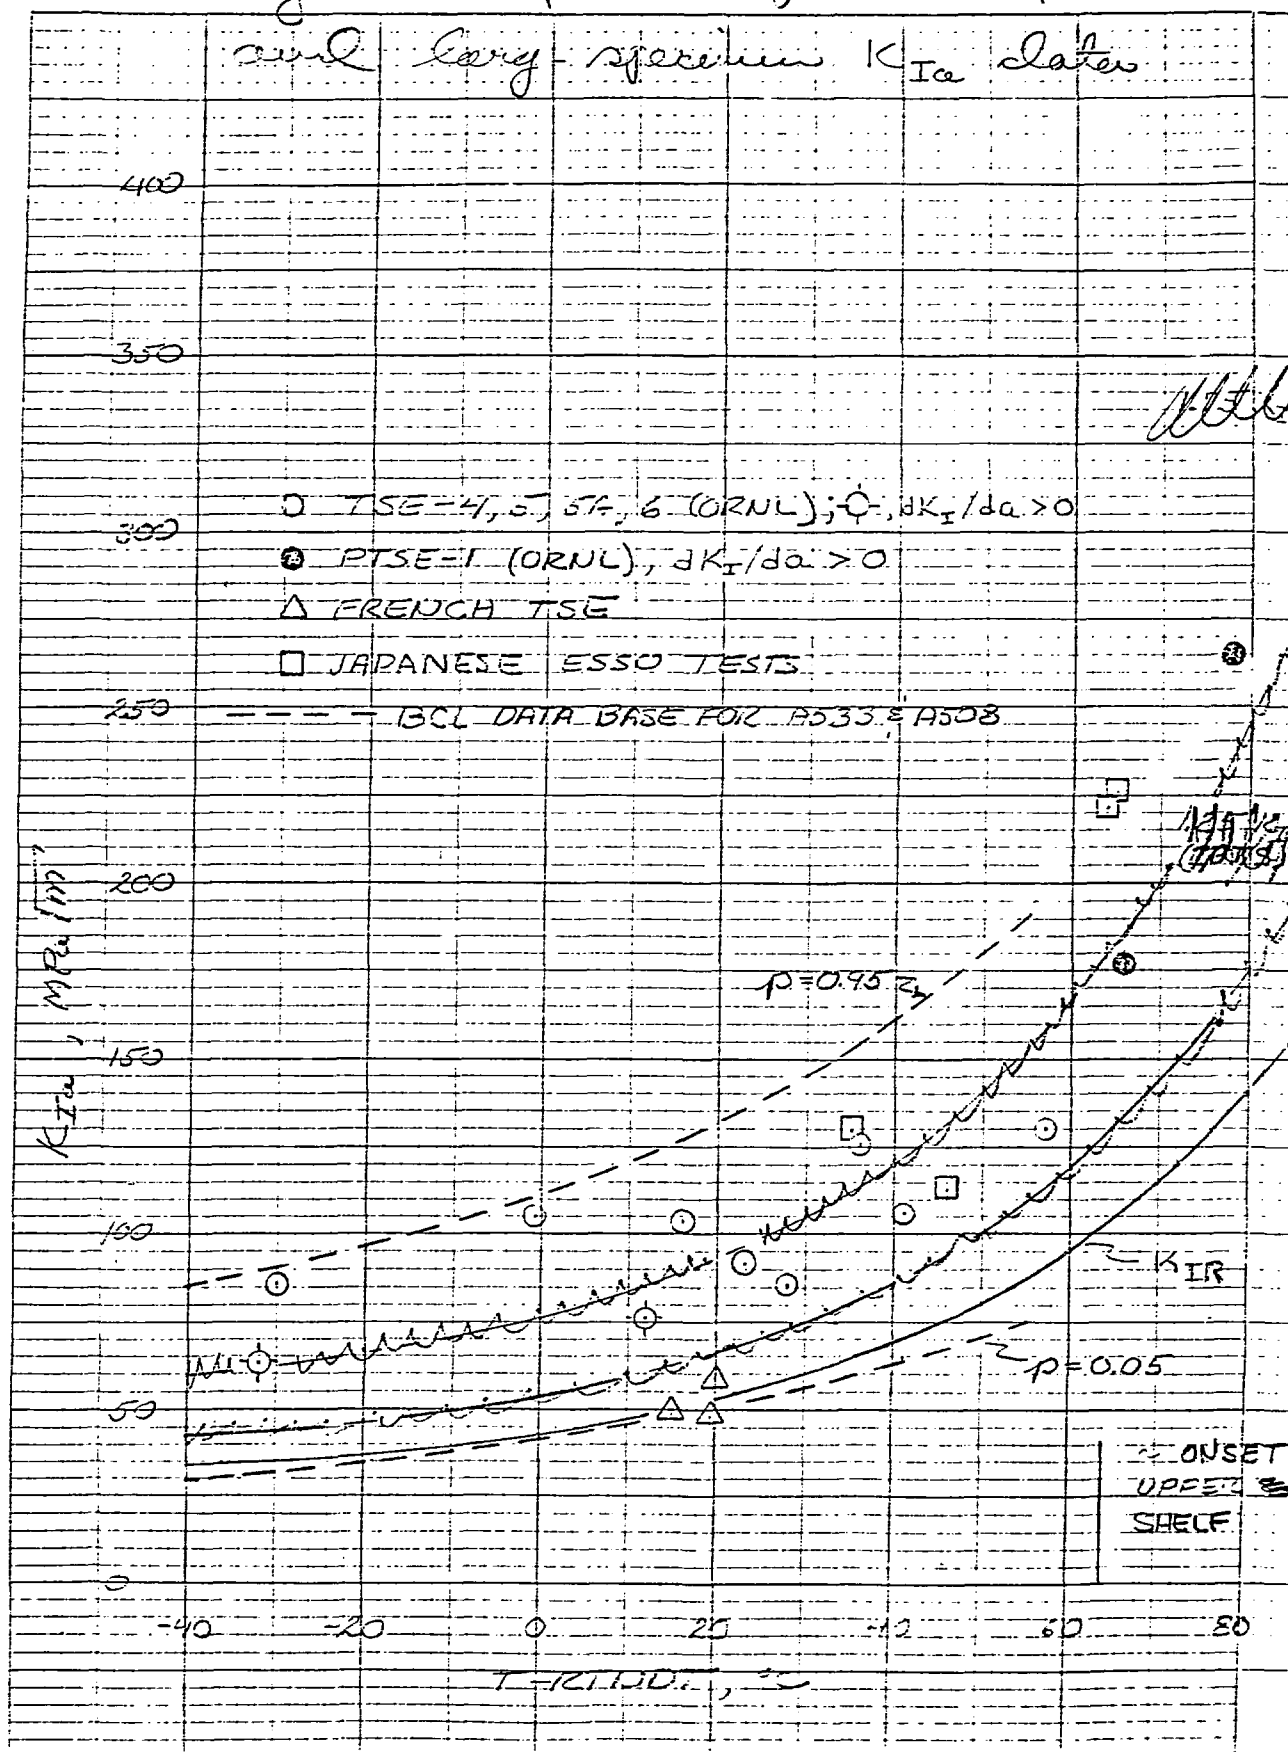 and larg-specimen K_Ia data
400
350
300
250
200
150
100
50
0
O TSE-4, 5, 5A, 6 (ORNL); -O-, dK_I/da > 0
PTSE-1 (ORNL), dK_I/da > 0
△ FRENCH TSE
□ JAPANESE ESSO TESTS
--- BCL DATA BASE FOR A533 & A508
K_Ia, MPa√m
p=0.95
K_IR
p=0.05
~ ONSET
UPPER
SHELF
-40 -20 0 20 40 60 80
T-RTNDT, °C